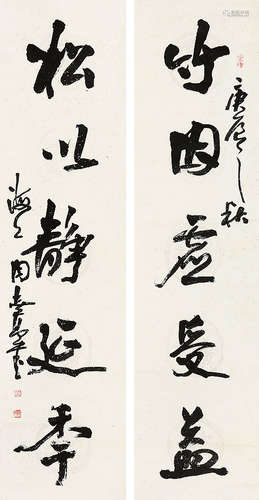 竹因虚受益
庚辰之秋
松以静延年
海上周志高書